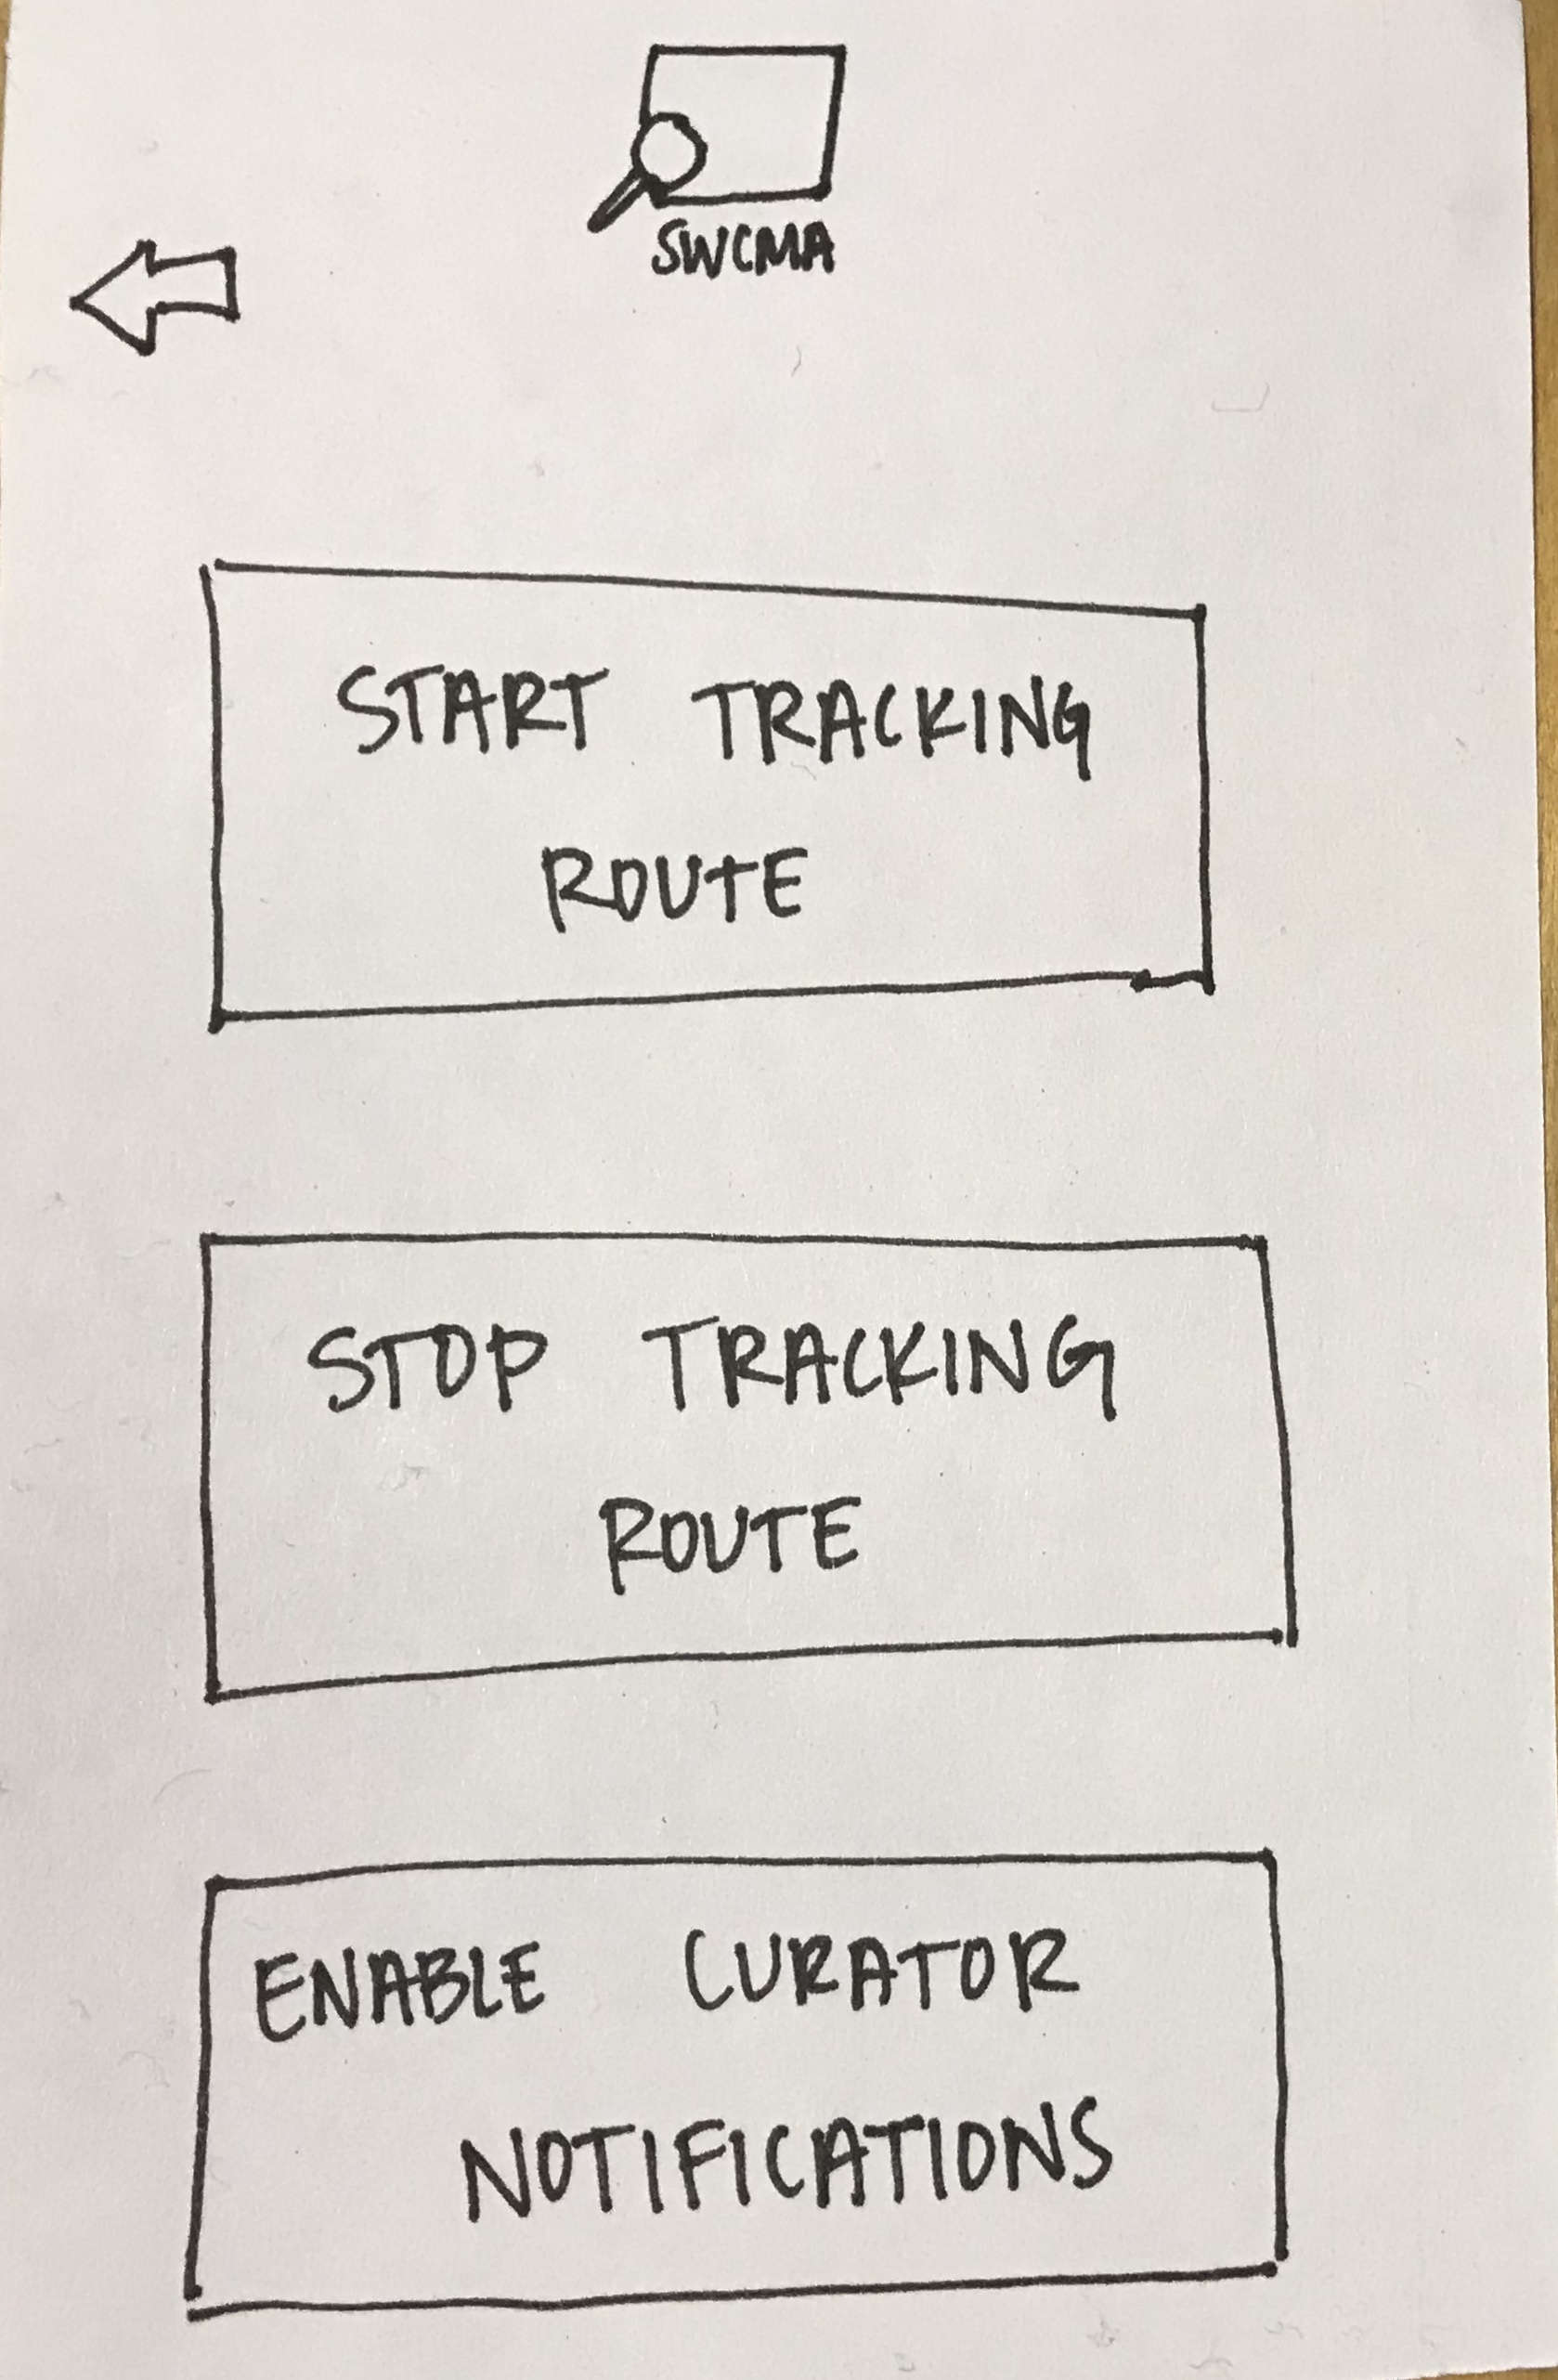 SWCMA
START TRACKING
ROUTE
STOP TRACKING
ROUTE
ENABLE CURATOR
NOTIFICATIONS